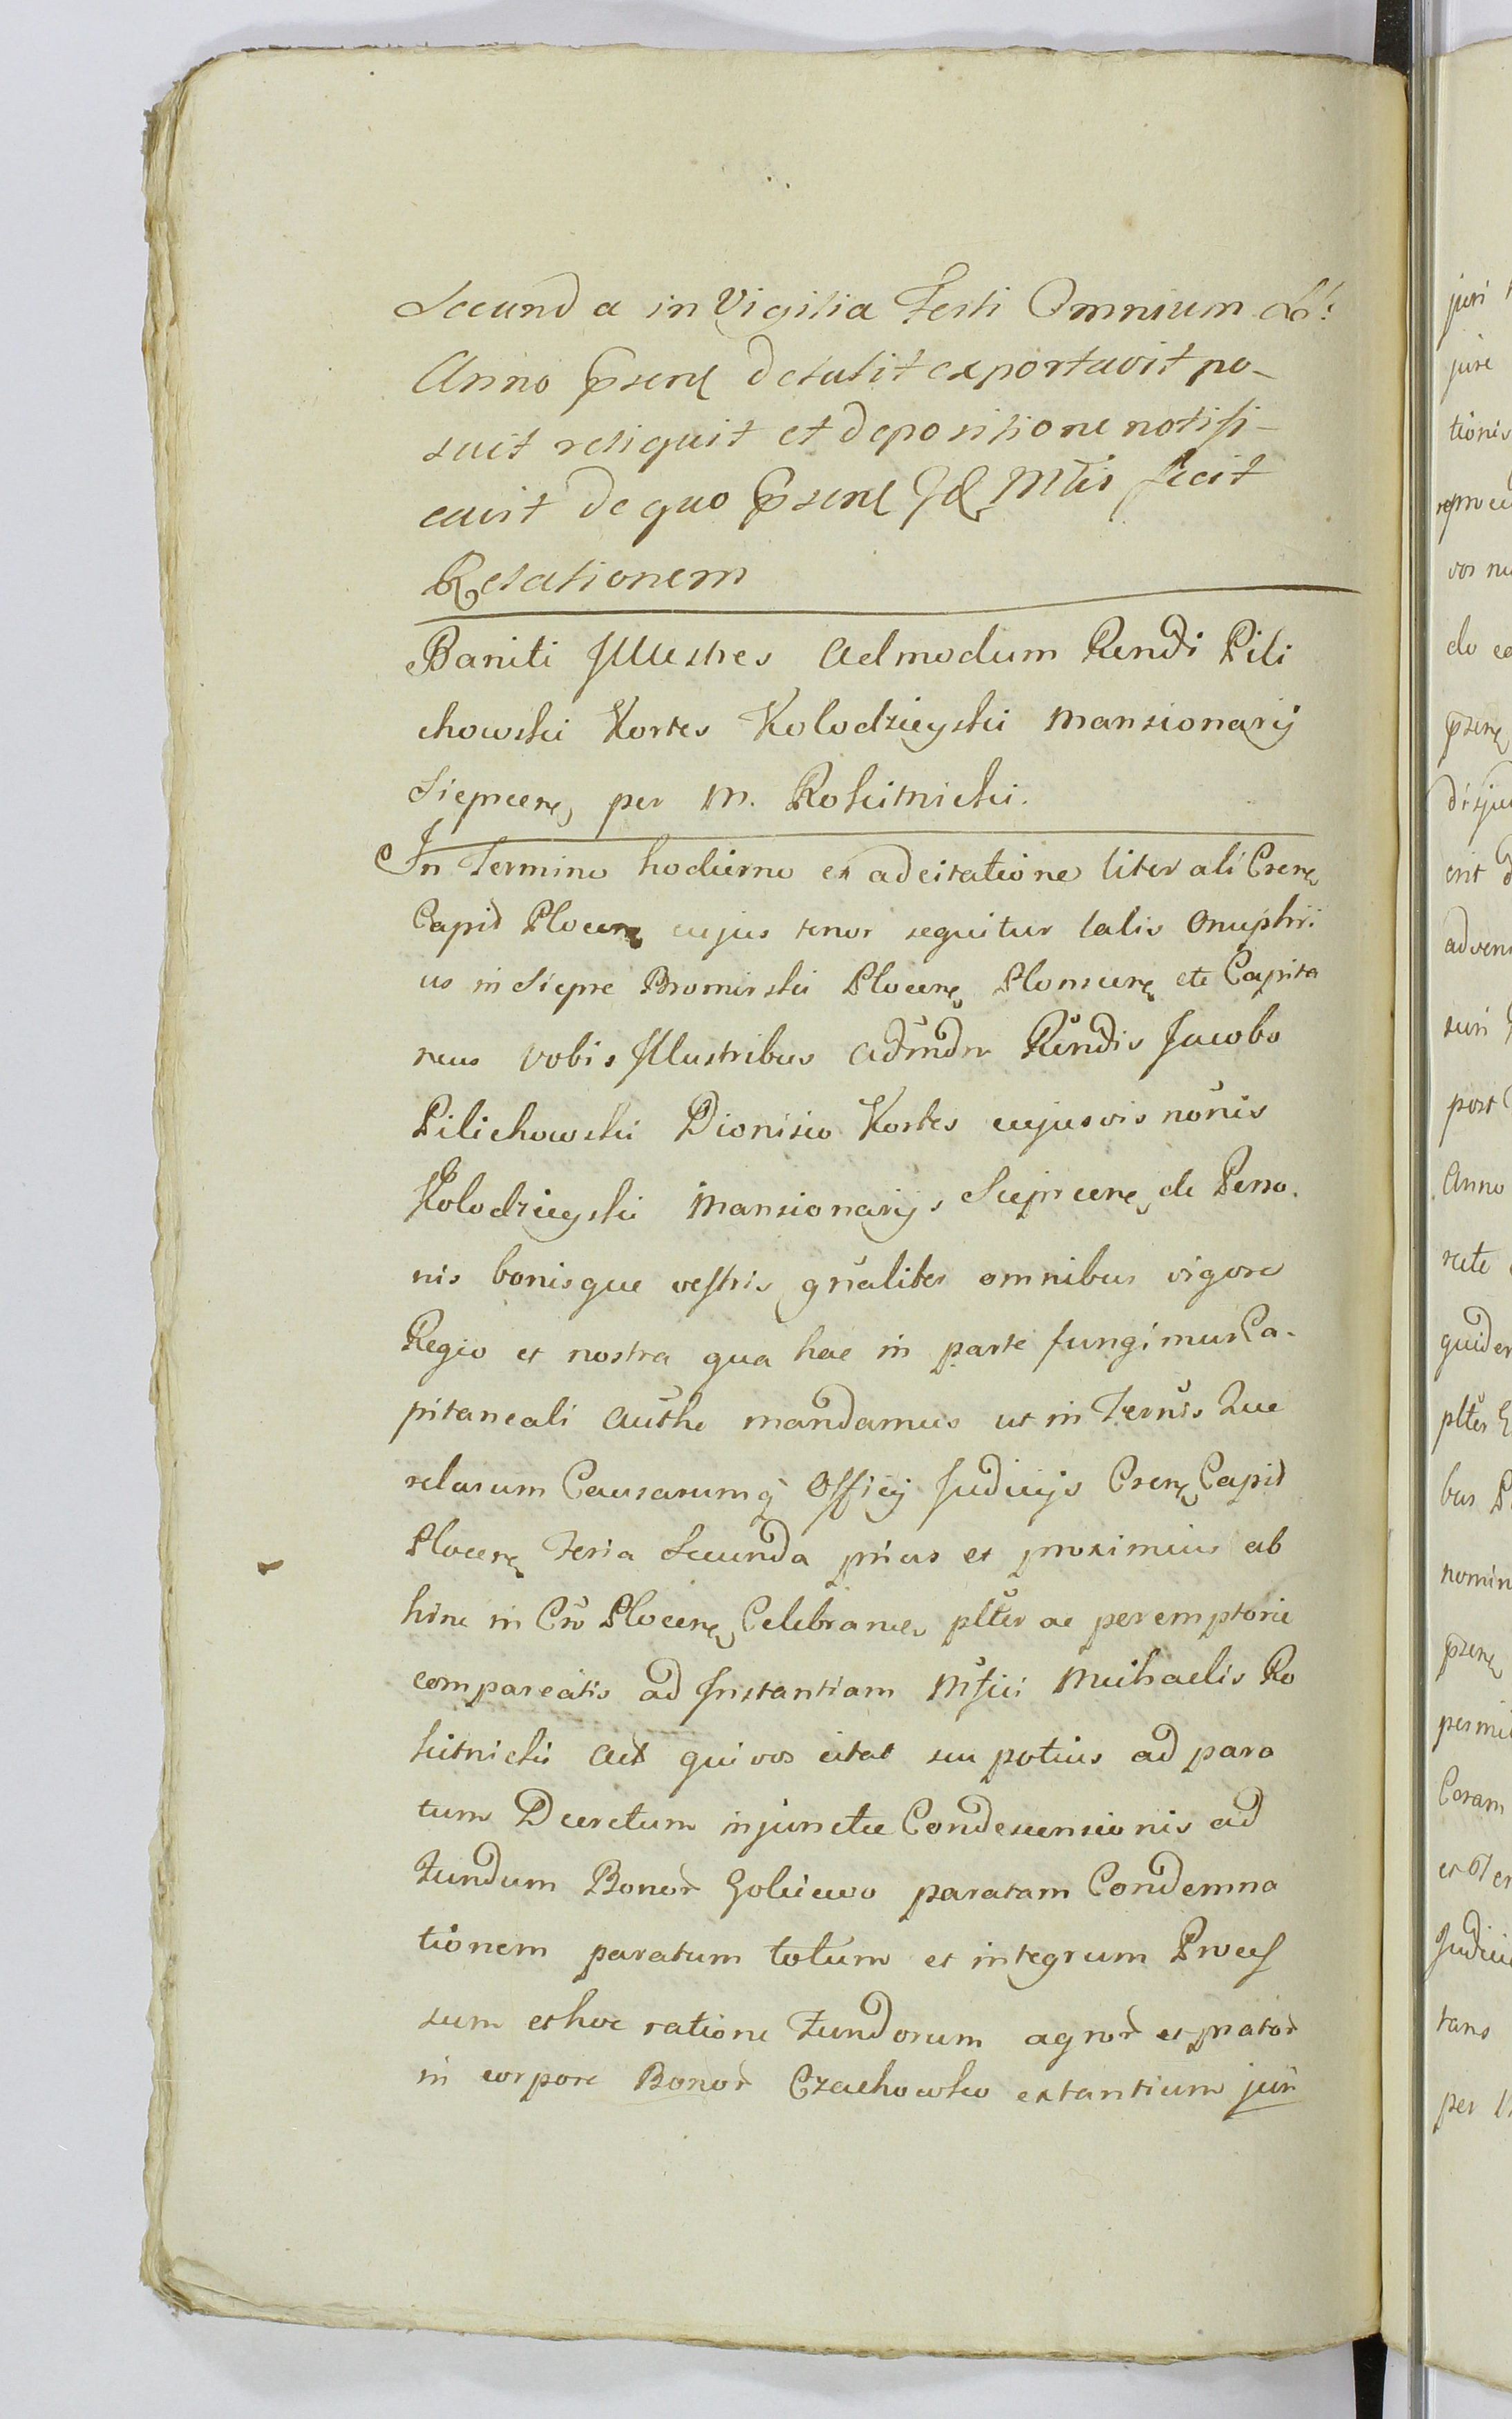 Secunda in Vigilia Festi Omnium SS:
Anno psenť detulit exportavit po-
suit reliquit et depositione notifi-
cavit de quo psenť Mtis fecit
Relationem
Baniti Illustres Admodum Rendi Pili
chowski Kortes Kolodzieyski Mansionarij
Sieprcens per M. Rokitnicki.
In Termino hodierno ex adcitatione literali Csens
Capit Plocens cujus tenor sequitur talis Onuphri:
us in Siepre Bromirski Plocens Plonscens etc Capita
neus vobis Illustribus admdm Rendis Jacobo
Pilichowski Dionisio Kortes cujusvis nonis
Kolodzieyski Mansionarijs Sieprcens de Perso.
nis bonisque vestris gnaliter omnibus vigore
Regio et nostra qua hac in parte fungimur Ca-
pitaneali Authe mandamus ut in Ternis Que
relarum Causarumq Officij Judicijs Csens Capit
Plocens Feria Secunda prius et proximius ab
hinc in Cro Plocens Celebrances plter ac peremptorie
compareatis ad Instantiam Mfici Michaelis Ro
kitnicki Act qui vos citat seu potius ad para
tum Decretum injunctae Condescensionis ad
Fundum Bonor Golicewo paratam Condemna
tionem paratum totum et integrum Proces
sum et hoc ratione Fundorum agror et prator
in corpore Bonor Czachowko extantium juri
juri
jure
tionis
vos
do
psens
disju
erit
suri
post
Anno
quidem
plter
bus
nomin
psens
permi
Coram
Judici
tans
per